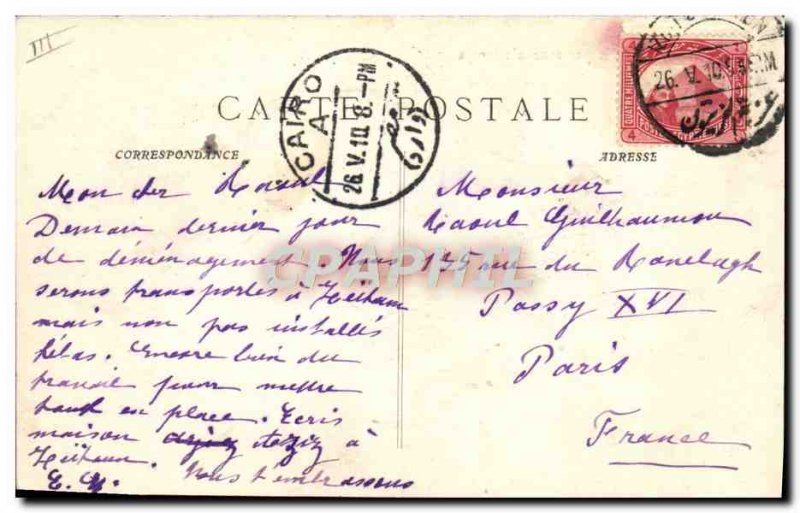 III
CARTE POSTALE
CORRESPONDANCE
ADRESSE
CAIRO
A
26.V.10 8.-PM
26.V.10
QUATRE MILLIEMES
4
4
Mon cher Raoul
Demain dernier jour
de déménagement. Nous
serons transportés à Zeitoun
mais non pas installés
hélas. Encore bien du
travail pour mettre
tout en place. Ecris
maison Aziz à
Zeitoun.
Nous t'embrassons
Monsieur
Raoul Guilhaumon
135 rue du Ranelagh
Passy XVI
Paris
France
CPAPHIL